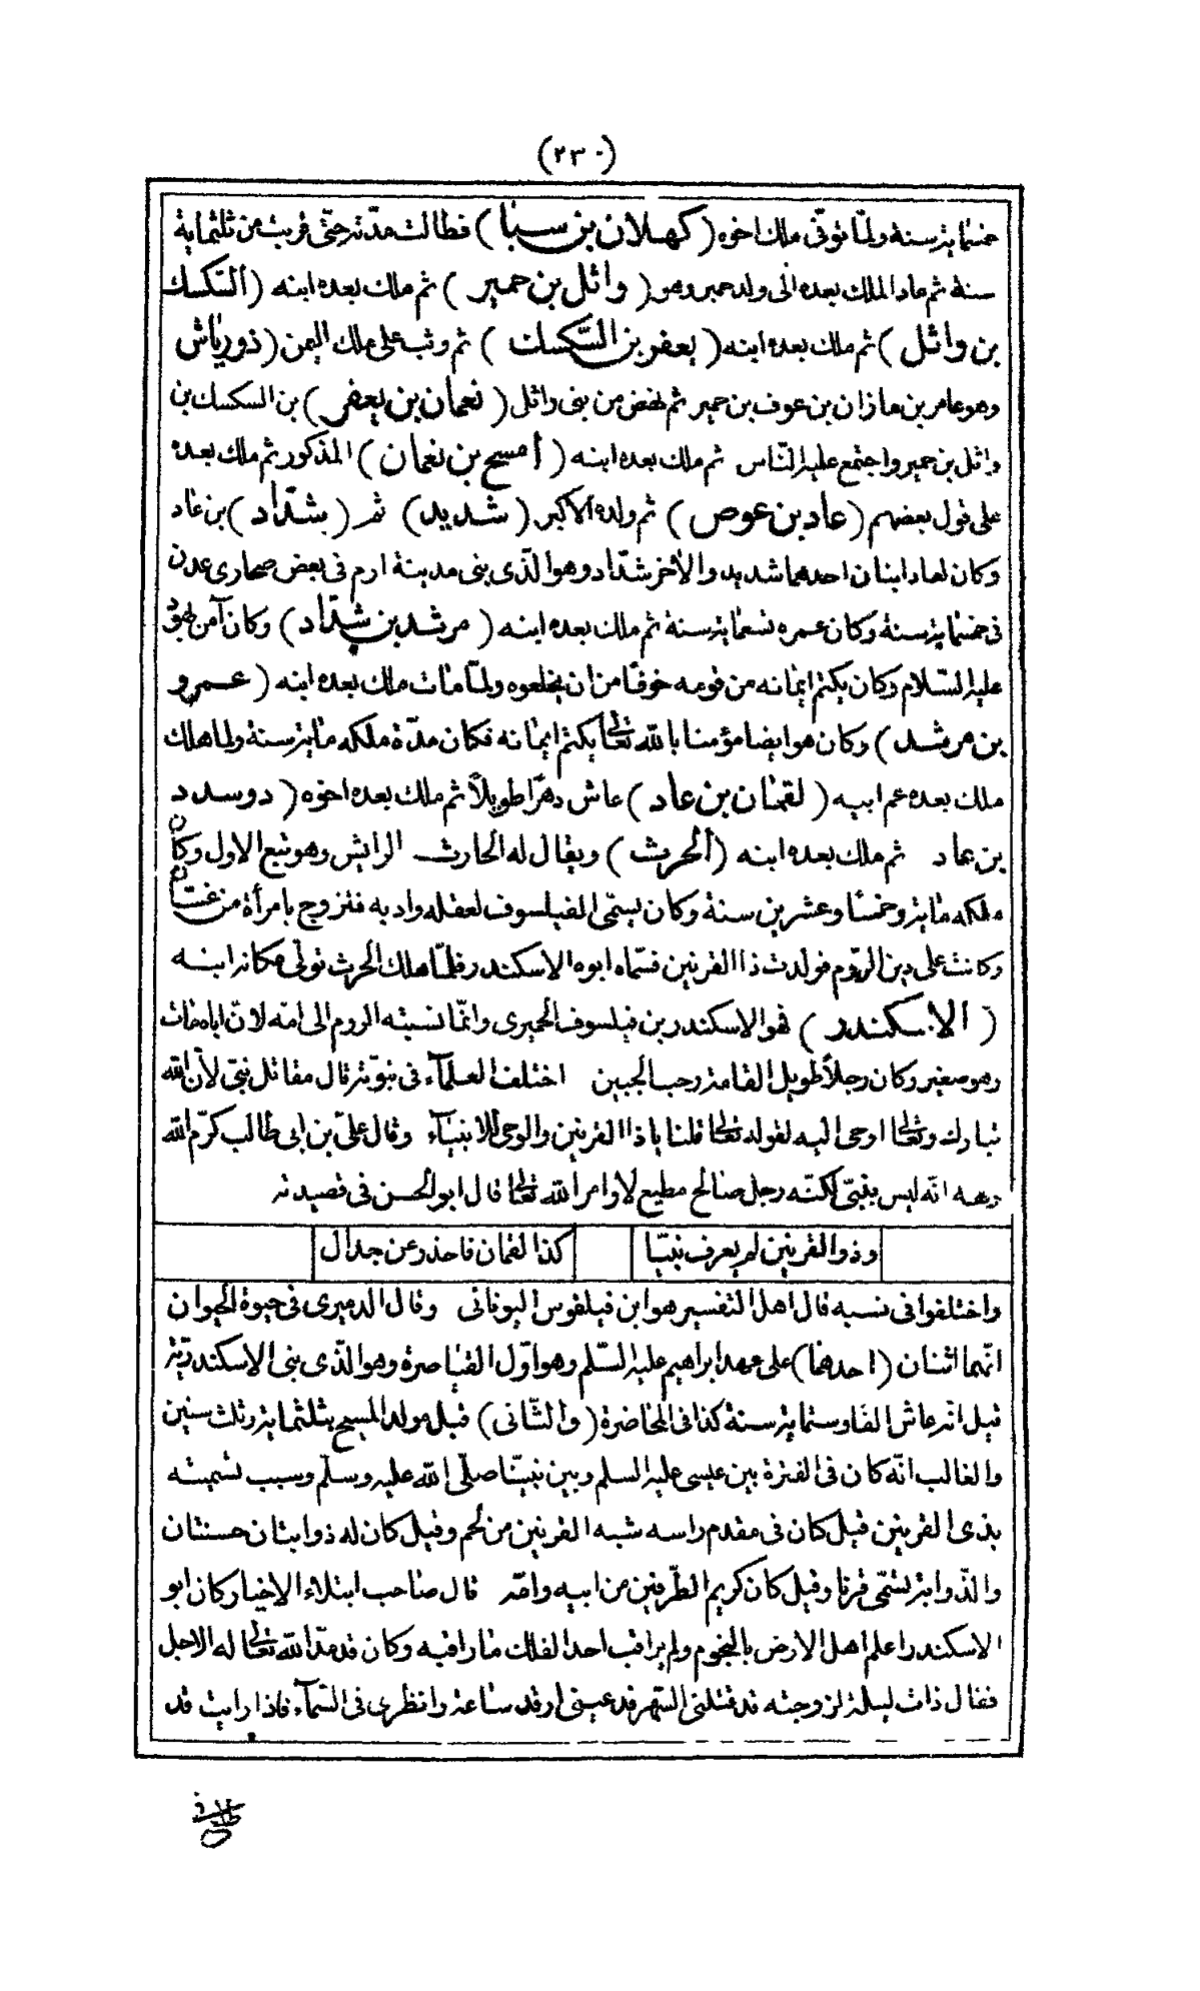 (٢٣٠)
خمسمایة سنة ولمّا توفّی ملك اخوه (كهلان بن سبا) فطالت مدّته حتّی قربت من ثلثمایة
سنة ثم عاد الملك بعده الی ولد حمیر وهو (واثل بن حمیر) ثم ملك بعده ابنه (السّكسك
بن واثل) ثم ملك بعده ابنه (یعفر بن السّكسك) ثم وثب علی ملك الیمن (ذو ریاش
وهو عامر بن ماذان بن عوف بن حمیر ثم نهض من بنی واثل (نعمان بن یعفر) بن السكسك بن
واثل بن حمیر واجتمع علیه النّاس ثم ملك بعده ابنه (أمسح بن نعمان) المذكور ثم ملك بعده
علی قول بعضهم (عاد بن عوص) ثم ولده الاكبر (شدید) ثم (بشدّاد) بن عاد
وكان لعاد ابنان احدهما شدید والاخر شدّاد وهو الّذی بنی مدینة ارم فی بعض صحاری عدن
فی خمسمایة سنة وكان عمره تسعمایة سنة ثم ملك بعده ابنه (مرشد بن شدّاد) وكان آمن بهود
علیه السّلام وكان یكتم ایمانه من قومه خوفًا من ان یخلعوه ولمّا مات ملك بعده ابنه (عمرو
بن مرشد) وكان هو ایضا مؤمنا بالله تعالی یكتم ایمانه فكان مدّة ملكه مایة سنة ولما هلك
ملك بعده عم ابیه (لقمان بن عاد) عاش دهرًا طویلاً ثم ملك بعده اخوه (دوسدد
بن عاد ثم ملك بعده ابنه (الحرث) ویقال له الحارث الرائش وهو تبع الاول وكان
ملكه مایة وخمسا وعشرین سنة وكان یسمّی الفیلسوف لعقله وادبه فتزوج بامرأة من غسان
وكانت علی دین الرّوم فولدت ذا القرنین فسمّاه ابوه الاسكندر فلمّا هلك الحرث تولّی مكانه ابنه
(الاسكندر) فهو الاسكندر بن فیلسوف الحمیری وانّما نسبته الروم الی امّه لانّ اباه مات
وهو صغیر وكان رجلاً طویل القامة رحب الجبین اختلف العلمآء فی نبوّته قال مقاتل نبیّ لأنّ الله
تبارك وتعالی اوحی الیه لقوله تعالی قلنا یا ذا القرنین والوحی للانبیآء وقال علیّ بن ابی طالب كرّم الله
وجهه انّه لیس بنبیّ لكنّه رجل صالح مطیع لاوامر الله تعالی قال ابو الحسن فی قصیدته
وذو القرنین لم یعرف نبیّا كذا لقمان فاحذر عن جدال
واختلفوا فی نسبه قال اهل التفسیر هو ابن فیلقوس الیونانی وقال الدمیری فی حیوة الحیوان
انّهما اثنان (احدهما) علی عهد ابراهیم علیه السّلم وهو اوّل القیاصرة وهو الّذی بنی الاسكندریّة
قیل انّه عاش الفا وستمایة سنة كذا فی المحاضرة (والثّانی) قبل مولد المسیح بثلثمایة وثلث سنین
والغالب انّه كان فی الفترة بین عیسی علیه السلم وبین نبیّنا صلّی الله علیه وسلّم وسبب تسمیته
بذی القرنین قیل كان فی مقدم راسه شبه القرنین من لحم وقیل كان له ذوابتان حسنتان
والذّوابة تسمّی قرنا وقیل كان كریم الطّرفین من ابیه وامّه قال صاحب ابتلاء الاخیار كان ابو
الاسكندر اعلم اهل الارض بالنجوم ولم یراقب احد الفلك ما راقبه وكان قد مدّ الله تعالی له الاجل
فقال ذات لیلة لزوجته قد قتلنی السّهر فدعینی ارقد ساعة وانظری فی السّمآء فاذا رایت قد